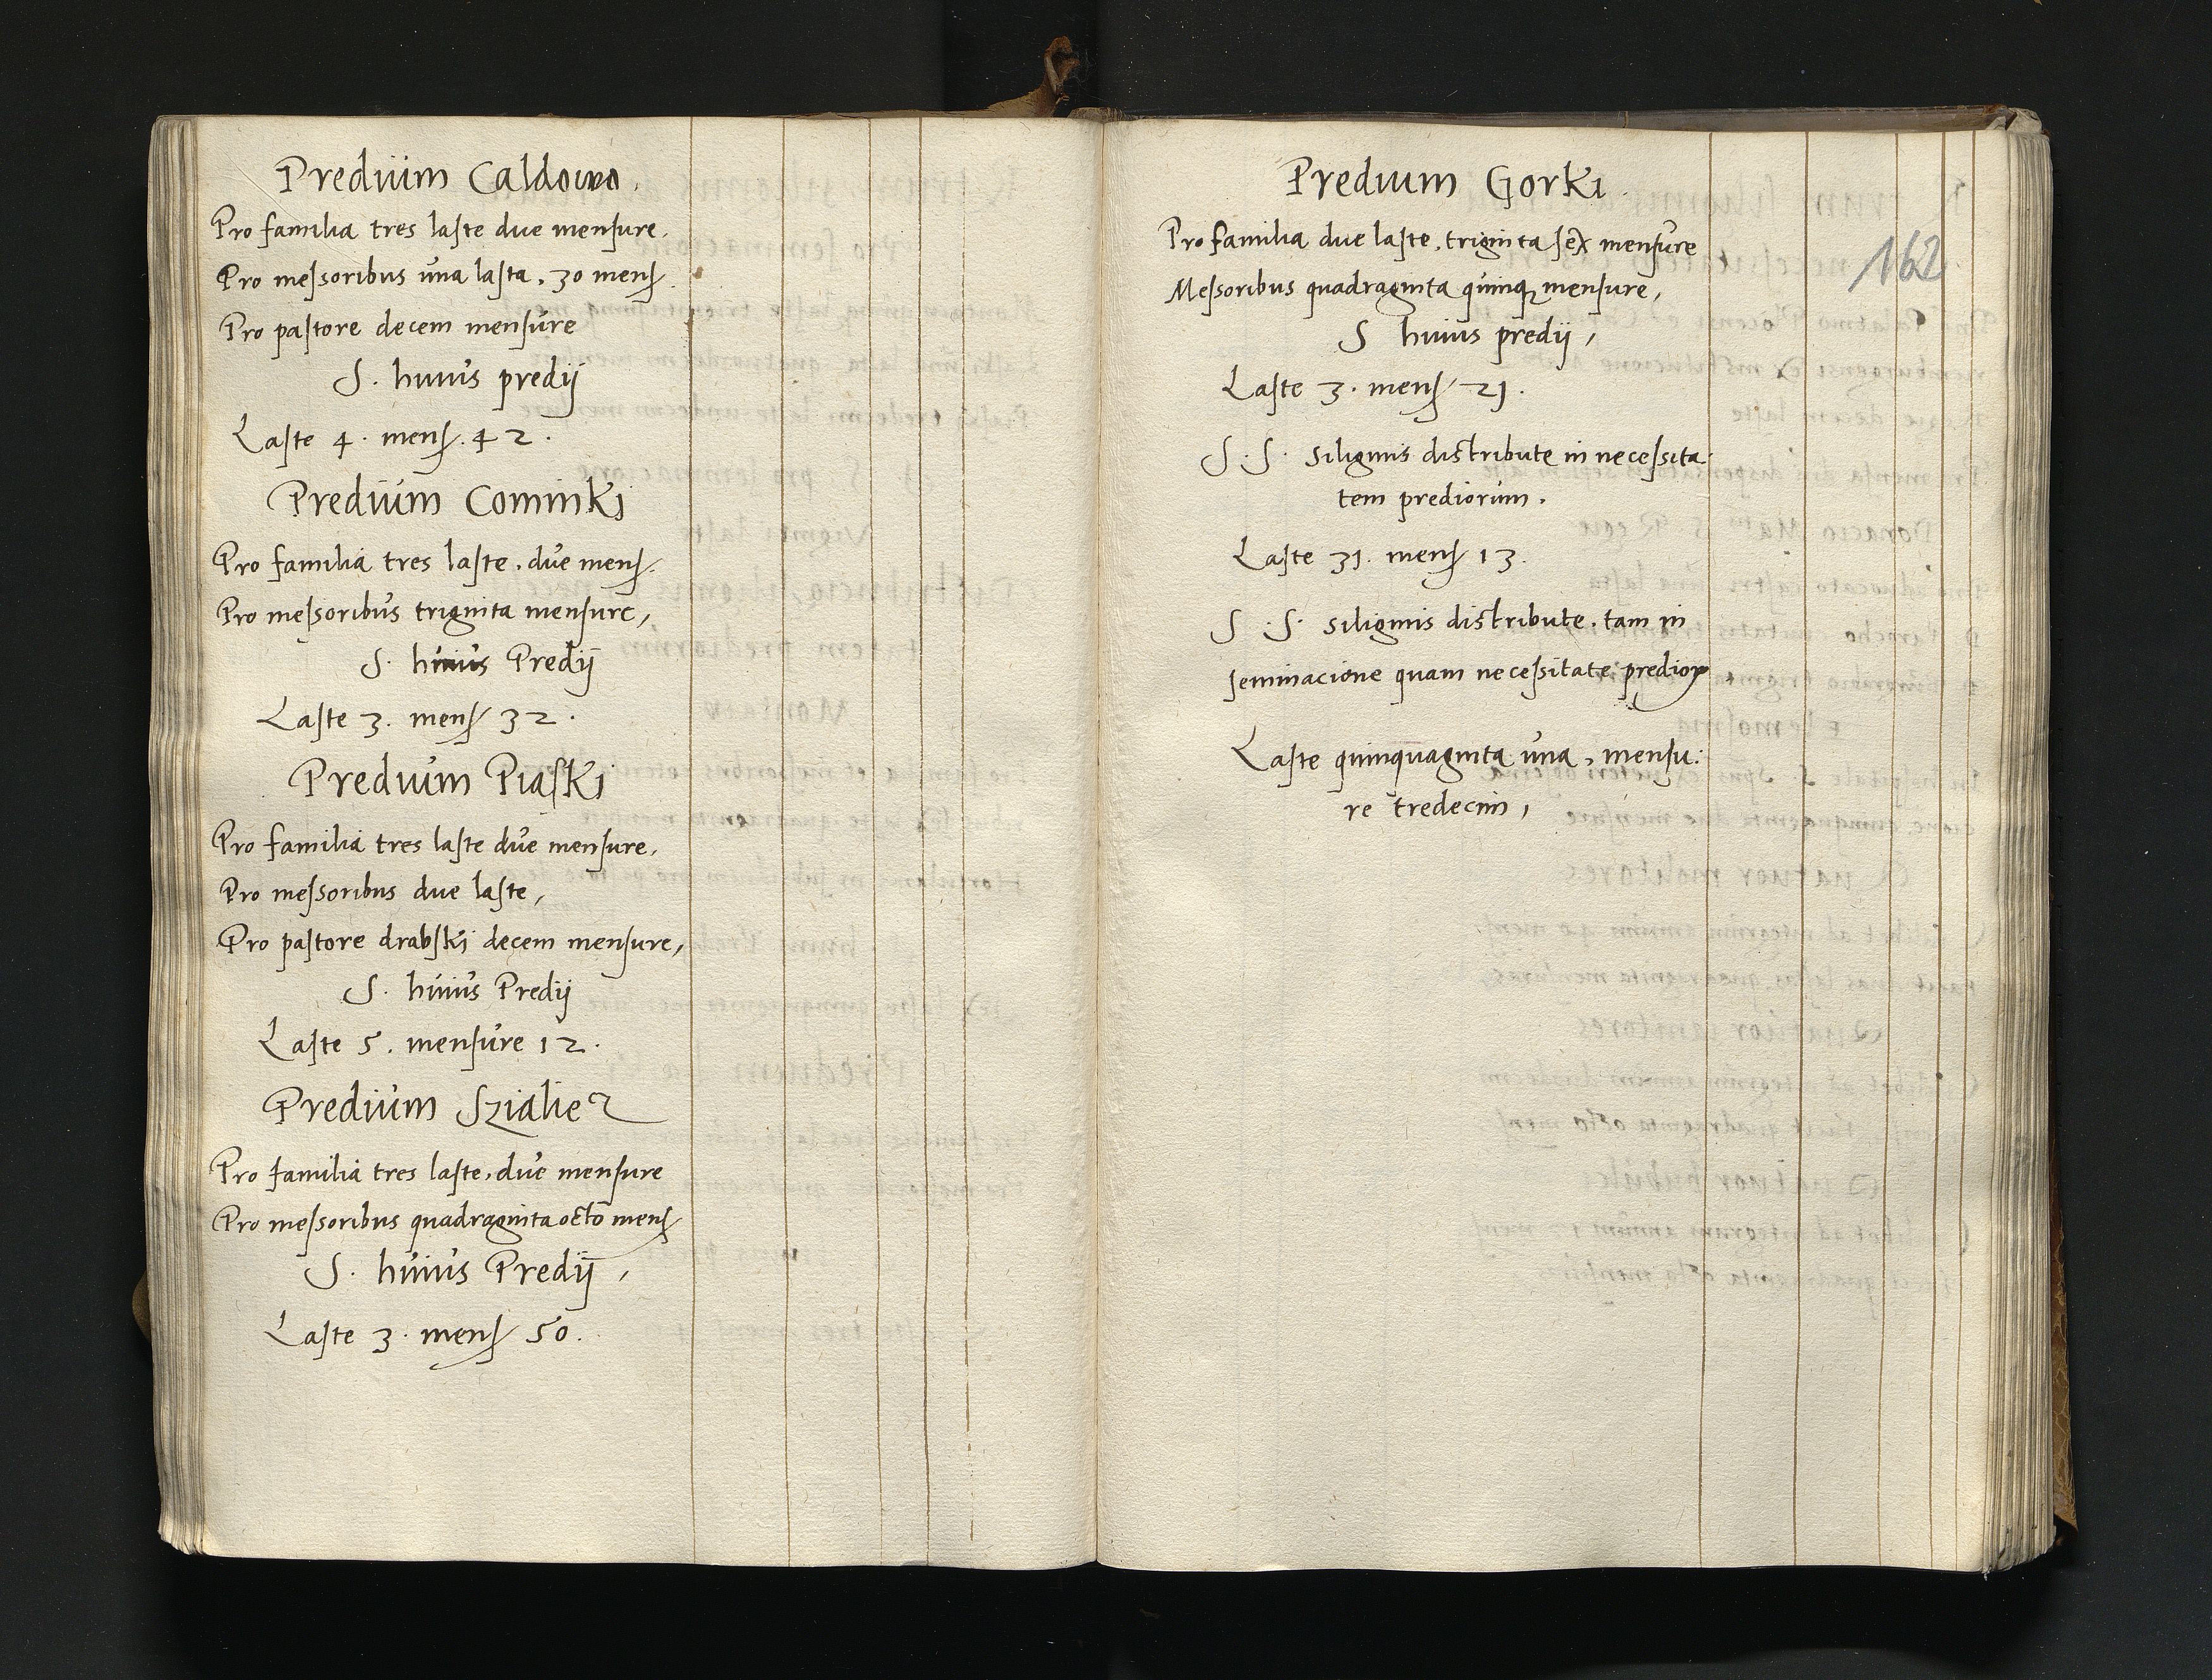 Predium Caldowo.
Pro familia tres laste due mensure.
Pro messoribus una lasta. 30 mens.
Pro pastore decem mensure
S. huius predij
Laste 4. mens. 42.
Predium Cominki
Pro familia tres laste. due mens.
Pro messoribus triginta mensure,
S. huius Predij
Laste 3. mens 32.
Predium Piaski
Pro familia tres laste due mensure.
Pro messoribus due laste,
Pro pastore drabski decem mensure,
S. huius Predij
Laste 5. mensure 12.
Predium Szialie
Pro familia tres laste. due mensure
Pro messoribus quadraginta octo mens
S. huius Predij,
Laste 3. mens 50.
Predium Gorki.
Pro familia due laste. triginta sex mensure
Messoribus quadraginta quinq mensure,
S huius predij,
Laste 3. mens 21.
S. S. siliginis distribute in necessita
tem prediorum.
Laste 31. mens 13.
S. S. siliginis distribute. tam in
seminacione quam necessitate predioꝝ
Laste quinquaginta una, mensu:
re tredecim,
162